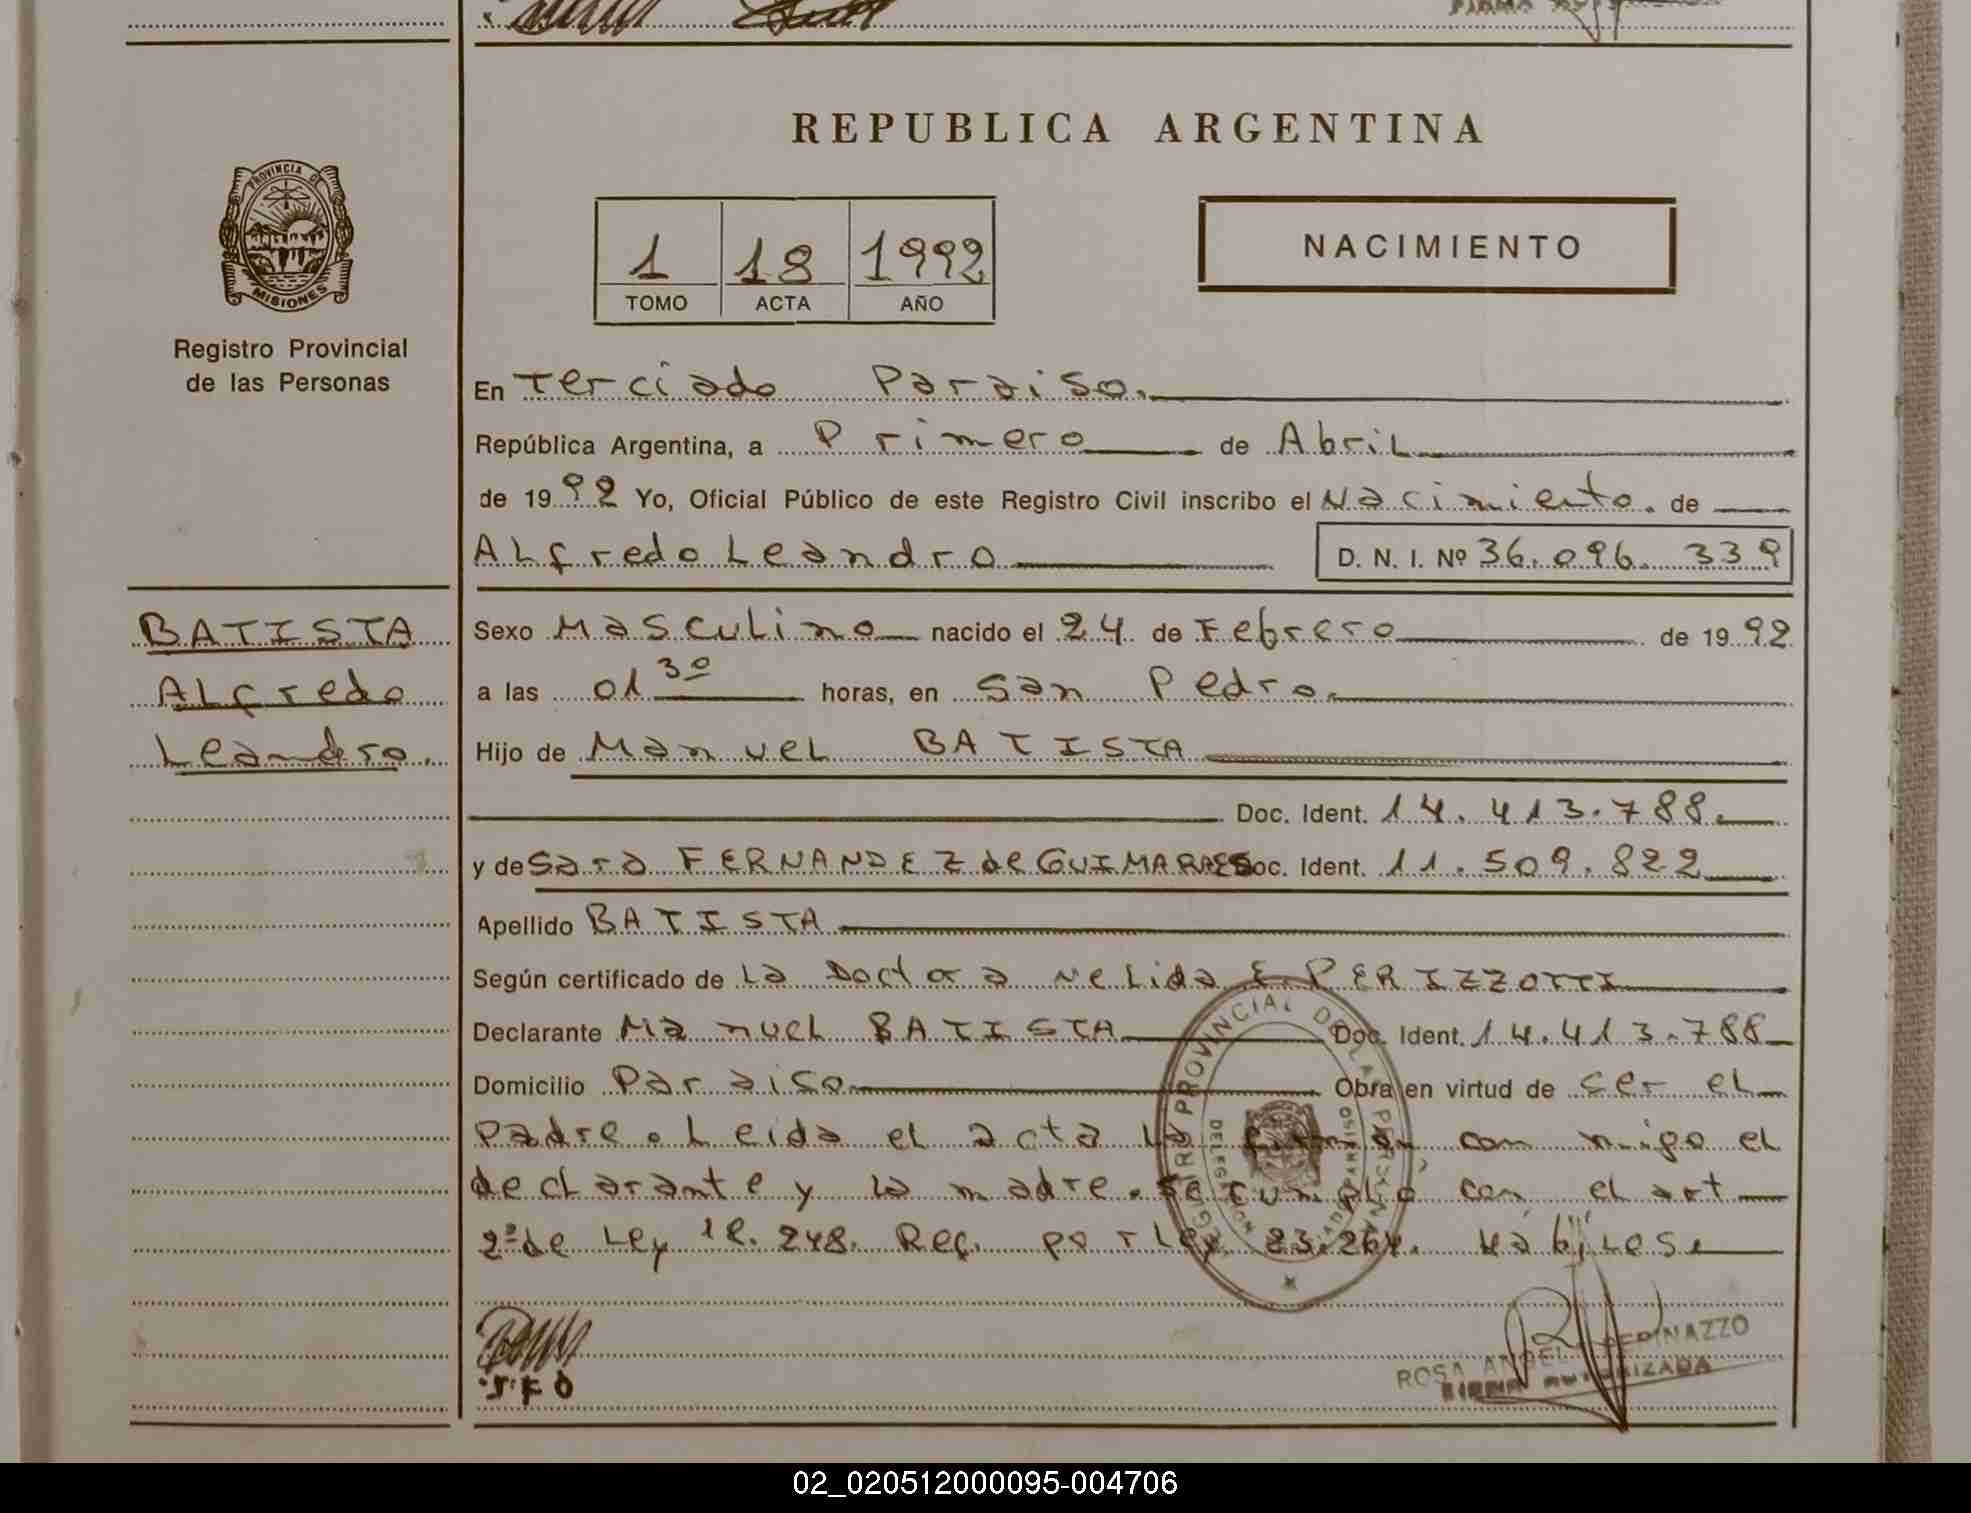 REPUBLICA ARGENTINA
PROVINCIA DE
MISIONES
Registro Provincial
de las Personas
1 18 1992
TOMO ACTA AÑO
NACIMIENTO
En Terciado Paraiso.
República Argentina, a Primero de Abril
de 1992 Yo, Oficial Público de este Registro Civil inscribo el Nacimiento. de
Alfredo Leandro D. N. I. Nº 36.096.339
BATISTA
Alfredo
Leandro.
Sexo Masculino nacido el 24 de Febrero de 1992
a las 01 30 horas, en San Pedro.
Hijo de Manuel BATISTA
Doc. Ident. 14.413.788.
y de Sara FERNANDEZ de GUIMARAES Doc. Ident. 11.509.822
Apellido BATISTA
Según certificado de La Doctora Nelida E. PERIZZOTTI
Declarante Manuel BATISTA Doc. Ident. 14.413.788
Domicilio Paraiso Obra en virtud de ser el
Padre. Leida el acta la firman con migo el
declarante y la madre. Se cumplió con el art
2º de Ley 18.248. Reg. por Ley 23.264. Hábiles.
REGISTRO PROVINCIAL DE LAS PERSONAS
DELEGACION TERCIADO PARAISO
S.F.O
ROSA ANGEL PERINAZZO
FIRMA AUTORIZADA
02_020512000095-004706